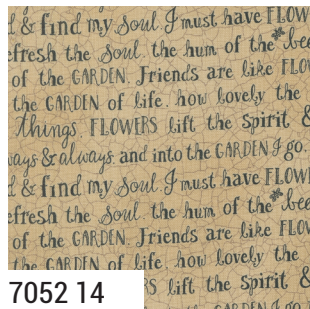 & find my Soul I must have FLOW
efresh the Soul. the hum of the bee
of the GARDEN. Friends are like FLO
the GARDEN of life. how lovely the
things. FLOWERS lift the Spirit &
ways & always. and into the GARDEN I go.
& find my Soul I must have FLOW
efresh the Soul. the hum of the bee
of the GARDEN. Friends are like FLOW
the GARDEN of life. how lovely the
S lift the Spirit &
GARDEN I go.
7052 14